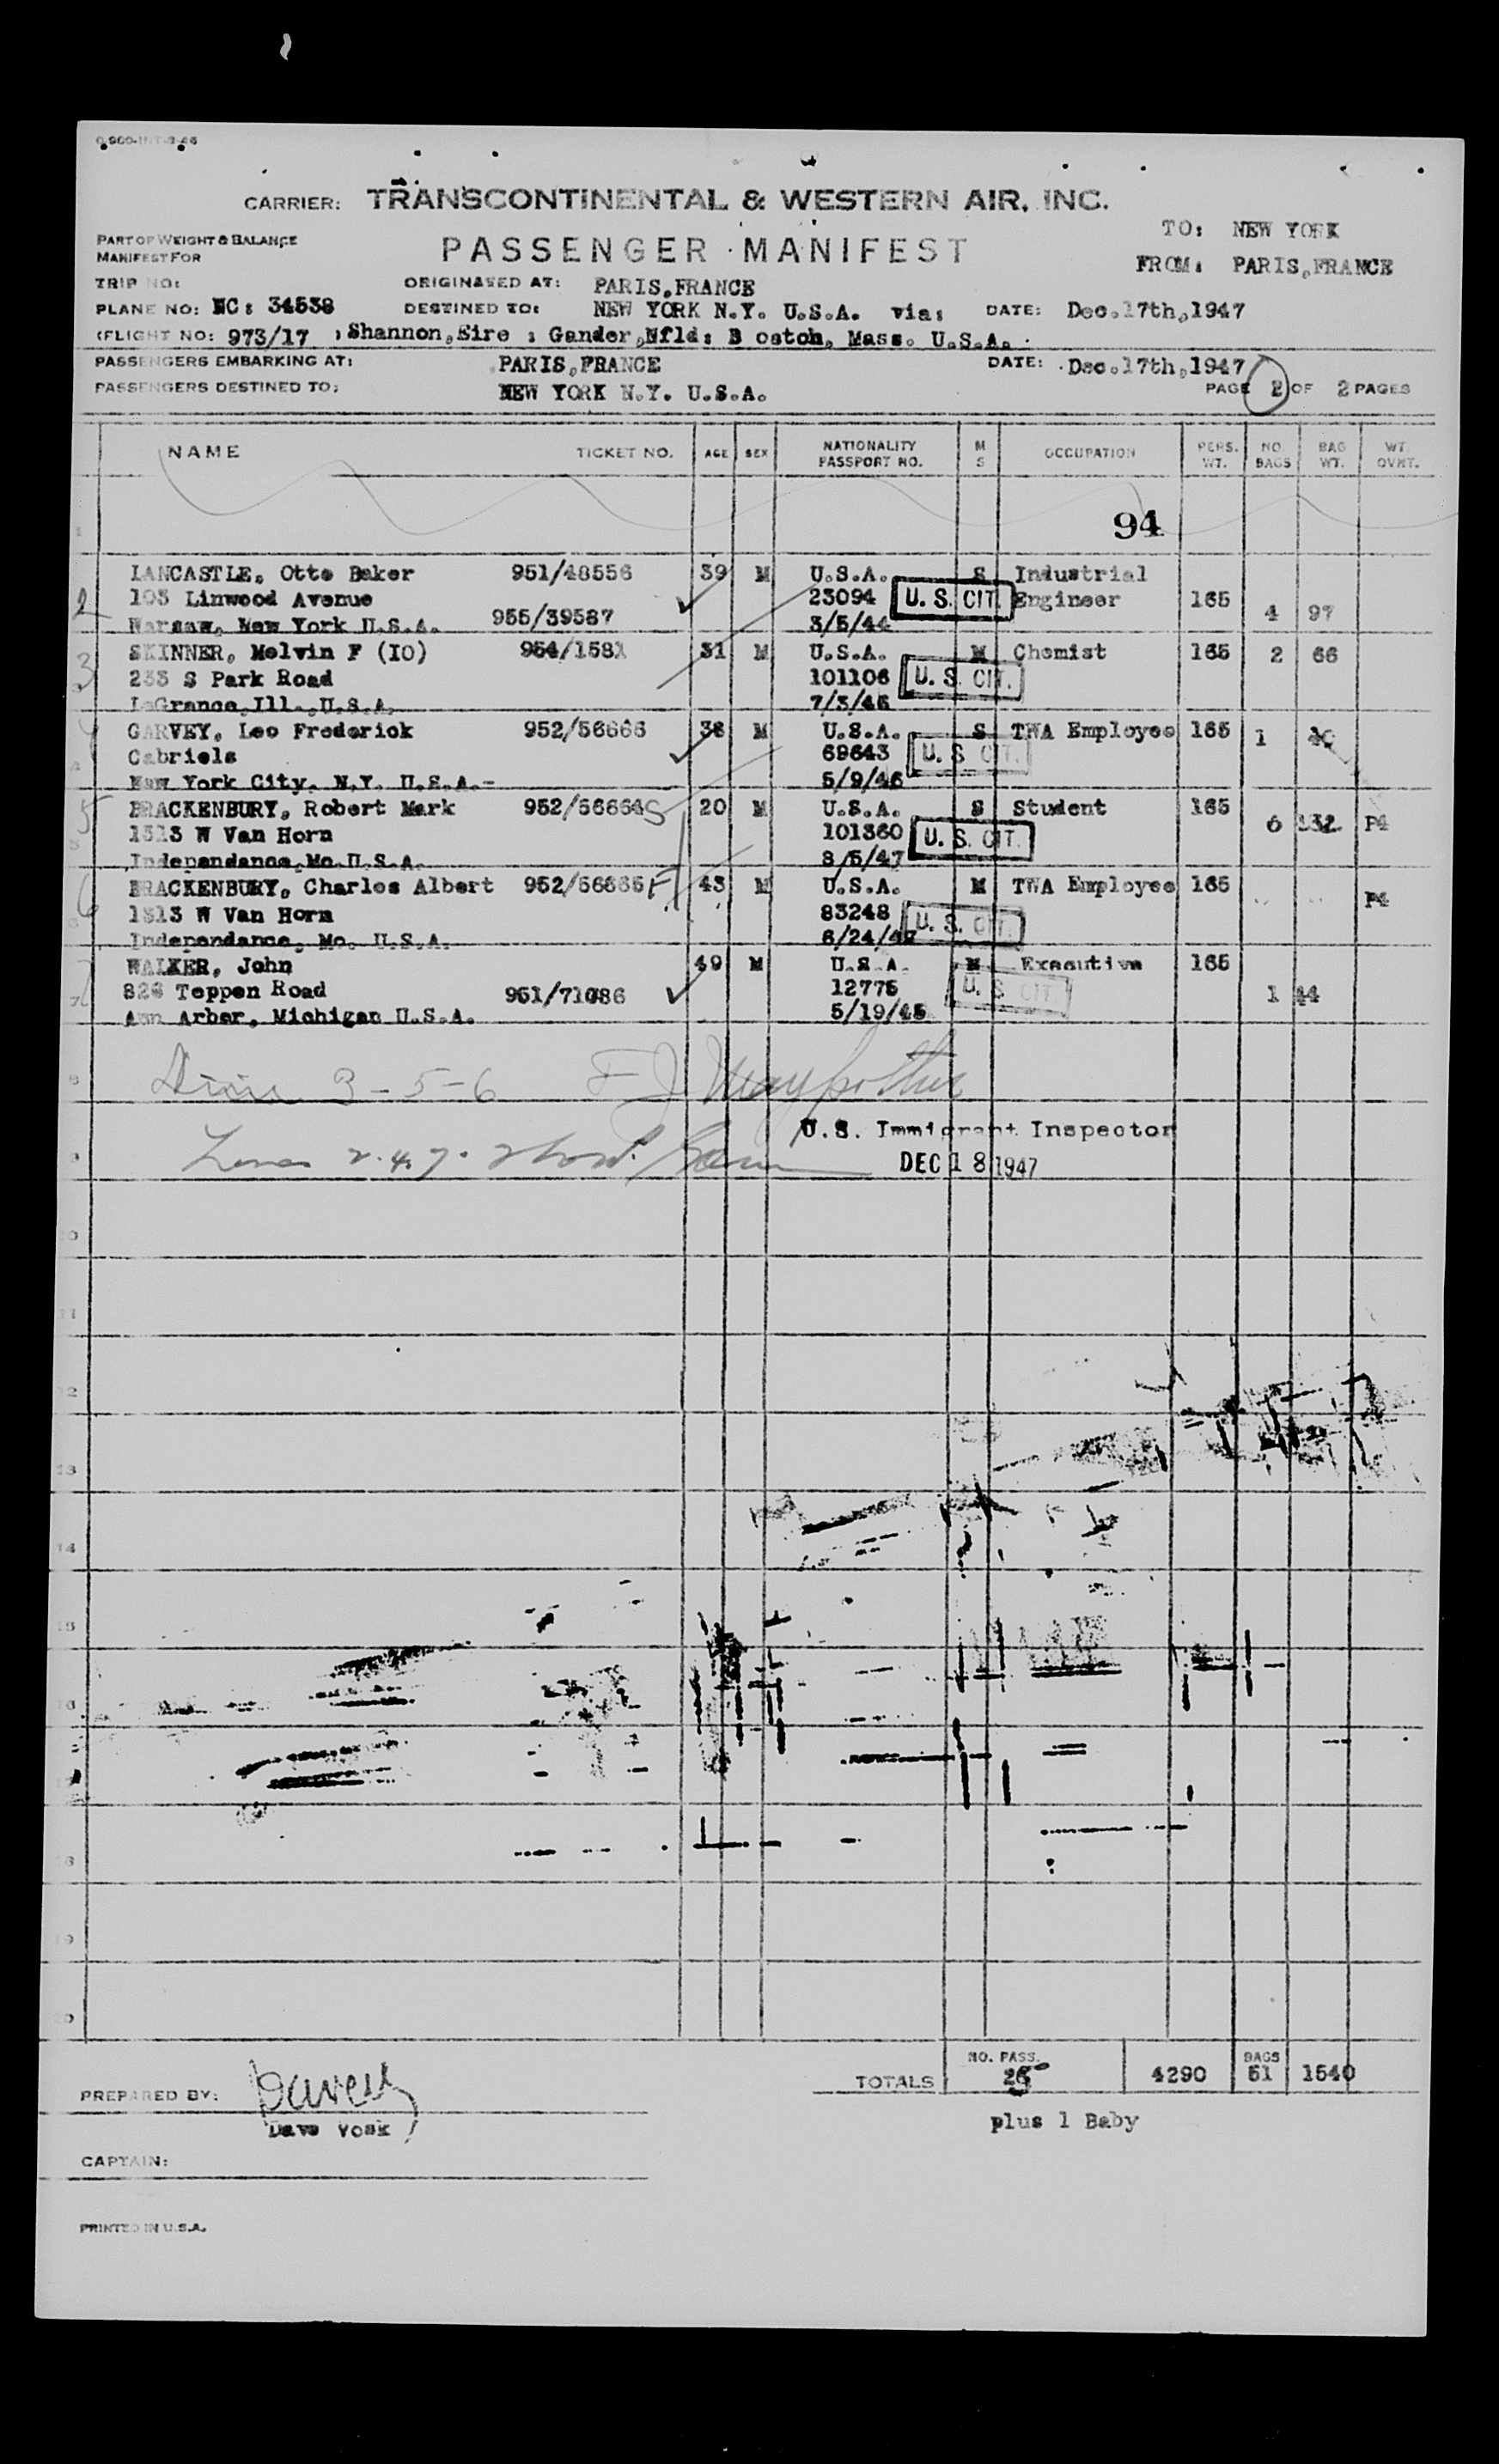 CARRIER: TRANSCONTINENTAL & WESTERN AIR, INC.
PART OF WEIGHT & BALANCE
MANIFEST FOR
PASSENGER MANIFEST
TO: NEW YORK
FROM: PARIS, FRANCE
TRIP NO:
ORIGINATED AT: PARIS, FRANCE
PLANE NO: NC: 34538 DESTINED TO: NEW YORK N.Y. U.S.A. via: DATE: Dec. 17th, 1947
(FLIGHT NO: 973/17 ; Shannon, Eire ; Gander, Nfld: B oston, Mass. U.S.A.
PASSENGERS EMBARKING AT: PARIS, FRANCE DATE: Dec. 17th, 1947
PASSENGERS DESTINED TO: NEW YORK N.Y. U.S.A. PAGE 2 OF 2 PAGES
NAME TICKET NO. AGE SEX NATIONALITY PASSPORT NO. M S OCCUPATION PERS. WT. NO. BAGS BAG WT. WT. OVHT.
94
LANCASTLE, Otto Baker 951/48556 39 M U.S.A. S Industrial
2 103 Linwood Avenue 23094 U.S. CIT. Engineer 165 4 97
Warsaw, New York U.S.A. 955/39587 3/5/44
3 SKINNER, Melvin F (IO) 954/158 31 M U.S.A. M Chemist 165 2 66
233 S Park Road 101106 U.S. CIT.
LaGrange, Ill., U.S.A. 7/3/46
4 GARVEY, Leo Frederick 952/56666 38 M U.S.A. S TWA Employee 165 1 40
Gabriels 69643 U.S. CIT.
New York City, N.Y. U.S.A.- 5/9/46
5 BRACKENBURY, Robert Mark 952/56664 S 20 M U.S.A. S Student 165
1313 W Van Horn 101360 U.S. CIT. 6 132 P4
Independance, Mo. U.S.A. 8/5/47
6 BRACKENBURY, Charles Albert 952/56665 F 43 M U.S.A. M TWA Employee 165
1313 W Van Horn 83248 U.S. CIT. P4
Independance, Mo. U.S.A. 6/24/47
7 WALKER, John 49 M U.S.A. M Executive 165
Teppen Road 951/71086 12775 U.S. CIT. 1 44
Ann Arbor, Michigan U.S.A. 5/19/45
8 3-5-6 F J
U.S. Immigrant Inspector
9 2.4.7.
DEC 18 1947
10
11
12
13
14
15
16
17
18
19
20
TOTALS NO. PASS. 26 4290 BAGS 51 1540
PREPARED BY:
plus 1 Baby
CAPTAIN:
PRINTED IN U.S.A.